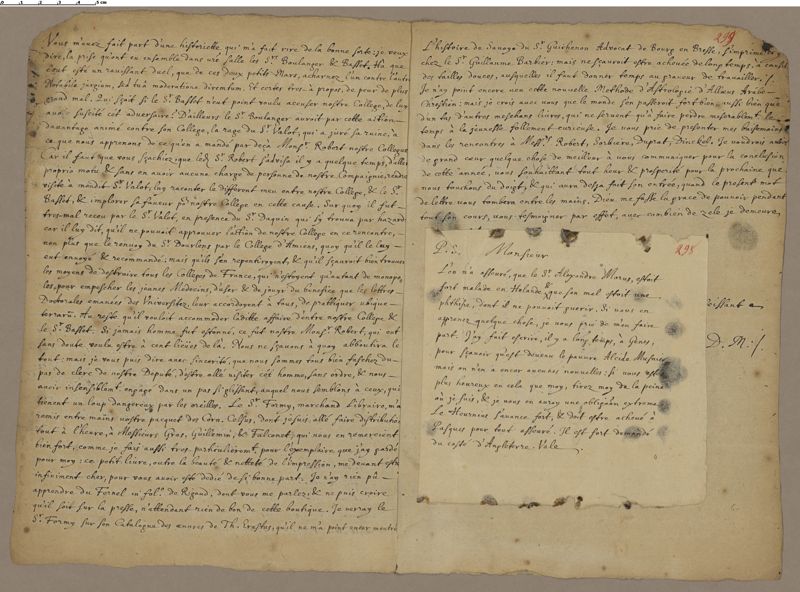 Vous m'avez fait part d'une historiette, qui m'a fait rire de la bonne sorte: je veux
dire, la prise quant en ensemble dans une salle les Srs Boulanger & Basset. Ha que
c'eut esté un ravissant duel, que de ces deux petits Mars, acharnez l'un contre l'autre
Notabile jurgium, sed tuâ moderatione diremtum. Et certes tres-à propos, de peur de plus
grand mal. Qui sçait si le Sr. Basset n'eut point voulu accuser nostre College, de luy
avoir suscité cét adversaire? D'ailleurs le Sr. Boulanger auroit par cette action
davantage animé contre son College, la rage du Sr. Valot, qui a juré sa ruine, à
ce que nous apprenons de ce qu'en a mandé par deçà Monsr. Robert nostre Collegue.
Car il faut que vous sçachiez que led. Sr. Robert s'advisa il y a quelque temps, d'aller
proprio motu & sans en avoir aucune charge de personne de nostre Compagnie, rendre
visite à mondit Sr. Valot, luy raconter le different meu entre nostre College, & le Sr.
Basset, & implorer sa faveur pr nostre College en cette cause. Sur quoy il fut
tres-mal receu par le Sr. Valot, en presence du Sr. Daquin qui s'y trouva par hazard
car il luy dit, qu'il ne pouvoit approuver l'action de nostre College en ce rencontre,
non plus que le renvoy du Sr. Dourlens par le College d'Amiens, quoy qu'il le luy
eut envoyé & recommandé: mais qu'ils s'en repentiroyent, & qu'il sçauroit bien trouver
les moyens de destruire tous les Colleges de France, qui n'estoyent qu'autant de monopo-
les, pour empescher les jeunes Medecins, d'user & de jouyr du benefice que les lettres
Doctorales emanées des Universitez, leur accordoyent à tous, de prattiquer ubique
terrarum. Au reste qu'il vouloit accommoder ladite affaire d'entre nostre College &
le Sr. Basset. Si jamais homme fut estonné, ce fut nostre Monsr. Robert, qui eut
sans doute voulu estre à cent lieües de là. Nous ne sçavons à quoy aboutira le
tout: mais je vous puis dire avec sincerité, que nous sommes tous bien faschez du
pas de clerc de nostre Deputé, d'estre allé visiter cét homme, sans ordre, & nous
avoir insensiblemt. engagé dans un pas si glissant, auquel nous semblons à ceux, qui
tiennent un loup dangereux par les oreilles. Le Sr. Formy, marchand Libraire, m'a
remis entre mains vostre pacquet des Corn. Celsus, dont je suis allé faire distribution
tout à l'heure, à Messieurs Gras, Guillemin, & Falconet; qui vous en remercient
bien fort, comme je fais aussi tres-particulieremt. pour l'exemplaire que j'ay gardé
pour moy: ce petit livre, outre la beauté & netteté de l'impression, me devant estre
infiniment cher, pour vous avoir esté dedié de si bonne part. Je n'ay rien pû
apprendre du Fernel in folo. de Rigaud, dont vous me parlez; & ne puis croire
qu'il soit sur la presse, n'attendant rien de bon de cette boutique. Je verray le
Sr. Formy sur son Catalogue des œuvres de Th. Erastus, qu'il ne m'a point encor montré
299
L'histoire de Savoye du Sr. Guichenon Advocat de Bourg en Bresse, s'imprime
chez le Sr. Guillaume Barbier: mais ne sçauroit estre achevée de long temps, à cause
des tailles douces, ausquelles il faut donner temps au graveur de travailler./.
Je n'ay point encore veu cette nouvelle Methode d'Astrologie d'Allaeus Arabe-
Chrestien: mais je crois avec vous que le monde s'en passeroit fort bien, aussi bien que
d'un tas d'autres meschans livres, qui ne servent qu'à faire perdre miserablemt. le
temps à la jeunesse follement curieuse. Je vous prie de presenter mes baisemains
dans les rencontres à Messrs. Robert, Sorbiere, Duprat, Dinckel. Je voudrois avoir
de grand cœur quelque chose de meilleur à vous communiquer pour la conclusion
de cette année, vous souhaittant tout heur & prosperité pour la prochaine que
nous touchons du doigt, & qui aura desja fait son entrée, quand le present mot
de lettre vous tombera entre les mains. Dieu me fasse la grace de pouvoir pendant
tout son cours, vous tesmoigner par effet, avec combien de zele je demeure,
298
P.S. Monsieur
L'on m'a asseuré, que le Sr. Alexandre Morus, estoit
fort malade en Holande, & que son mal estoit une
phthisie, dont il ne pouvoit guerir. Si vous en
apprenez quelque chose, je vous prie de m'en faire
part. J'ay fait escrire, il y a long temps, à Genes,
pour sçavoir qu'est devenu le pauvre Alcide Musnier
mais on n'en a encor aucunes nouvelles: si vous estes
plus heureux en cela que moy, tirez moy de la peine
où je suis, & je vous en auray une obligation extreme.
Le Heurnius s'avance fort, & doit estre achevé à
Pasques pour tout asseuré. Il est fort demandé
du costé d'Angleterre. Vale
D. M./.